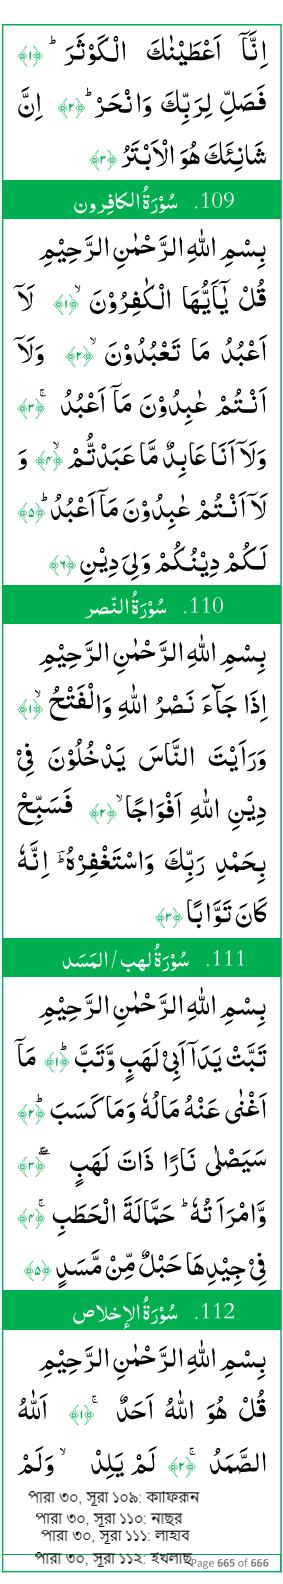 اِنَّاۤ اَعْطَیْنٰكَ الْكَوْثَرَ ؕ ﴿۱﴾
فَصَلِّ لِرَبِّكَ وَانْحَرْ ؕ ﴿۲﴾ اِنَّ
شَانِئَكَ هُوَ الْاَبْتَرُ ﴿۳﴾
109. سُوْرَةُ الكافِرون
بِسْمِ اللهِ الرَّحْمٰنِ الرَّحِیْمِ
قُلْ یٰۤاَیُّهَا الْكٰفِرُوْنَ ۙ ﴿۱﴾ لَاۤ
اَعْبُدُ مَا تَعْبُدُوْنَ ۙ ﴿۲﴾ وَلَاۤ
اَنْتُمْ عٰبِدُوْنَ مَاۤ اَعْبُدُ ۚ ﴿۳﴾
وَلَاۤ اَنَا عَابِدٌ مَّا عَبَدْتُّمْ ۙ ﴿۴﴾ وَ
لَاۤ اَنْتُمْ عٰبِدُوْنَ مَاۤ اَعْبُدُ ؕ ﴿۵﴾
لَكُمْ دِیْنُكُمْ وَلِیَ دِیْنِ ﴿۶﴾
110. سُوْرَةُ النّصر
بِسْمِ اللهِ الرَّحْمٰنِ الرَّحِیْمِ
اِذَا جَآءَ نَصْرُ اللهِ وَالْفَتْحُ ۙ ﴿۱﴾
وَرَاَیْتَ النَّاسَ یَدْخُلُوْنَ فِیْ
دِیْنِ اللهِ اَفْوَاجًا ۙ ﴿۲﴾ فَسَبِّحْ
بِحَمْدِ رَبِّكَ وَاسْتَغْفِرْهُ ؕ اِنَّهٗ
كَانَ تَوَّابًا ﴿۳﴾
111. سُوْرَةُ لهب/المَسَد
بِسْمِ اللهِ الرَّحْمٰنِ الرَّحِیْمِ
تَبَّتْ یَدَاۤ اَبِیْ لَهَبٍ وَّتَبَّ ؕ ﴿۱﴾ مَاۤ
اَغْنٰی عَنْهُ مَالُهٗ وَمَا كَسَبَ ؕ ﴿۲﴾
سَیَصْلٰی نَارًا ذَاتَ لَهَبٍ ۚۖ ﴿۳﴾
وَّامْرَاَ تُهٗ ؕ حَمَّالَةَ الْحَطَبِ ۚ ﴿۴﴾
فِیْ جِیْدِهَا حَبْلٌ مِّنْ مَّسَدٍ ﴿۵﴾
112. سُوْرَةُ الإخلاص
بِسْمِ اللهِ الرَّحْمٰنِ الرَّحِیْمِ
قُلْ هُوَ اللهُ اَحَدٌ ۚ ﴿۱﴾ اَللهُ
الصَّمَدُ ۚ ﴿۲﴾ لَمْ یَلِدْ ۙ وَلَمْ
পারা ৩০, সূরা ১০৯: কাফিরূন
পারা ৩০, সূরা ১১০: নাছর
পারা ৩০, সূরা ১১১: লাহাব
পারা ৩০, সূরা ১১২: ইখলাছ
Page 665 of 666